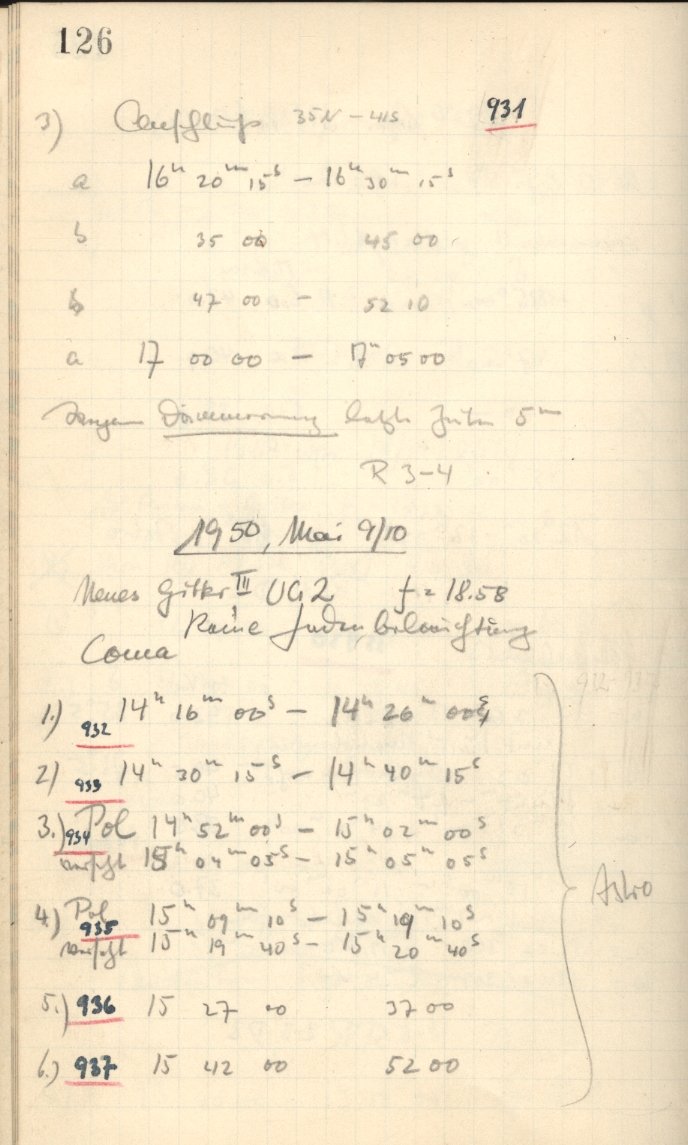 126
3) Anschluss 35N – 41S 931
a 16ʰ 20ᵐ 15ˢ – 16ʰ 30ᵐ 15ˢ
b 35 00 45 00
b 47 00 – 52 10
a 17 00 00 – 17ʰ 05 00
Dämmerung letzte 5ᵐ
R 3–4
1950, Mai 9/10
Neues Gitter III UG2 f = 18.58
Keine Fadenbeleuchtung
Coma
1.) 932 14ʰ 16ᵐ 00ˢ – 14ʰ 26ᵐ 00ˢ
2) 933 14ʰ 30ᵐ 15ˢ – 14ʰ 40ᵐ 15ˢ
3.) 934 Pol 14ʰ 52ᵐ 00ˢ – 15ʰ 02ᵐ 00ˢ
versch 15ʰ 04ᵐ 05ˢ – 15ʰ 05ᵐ 05ˢ
4.) Pol 935 15ʰ 09ᵐ 10ˢ – 15ʰ 19ᵐ 10ˢ
versch 15ʰ 19ᵐ 40ˢ – 15ʰ 20ᵐ 40ˢ
Astro
5.) 936 15 27 00 37 00
6.) 937 15 42 00 52 00